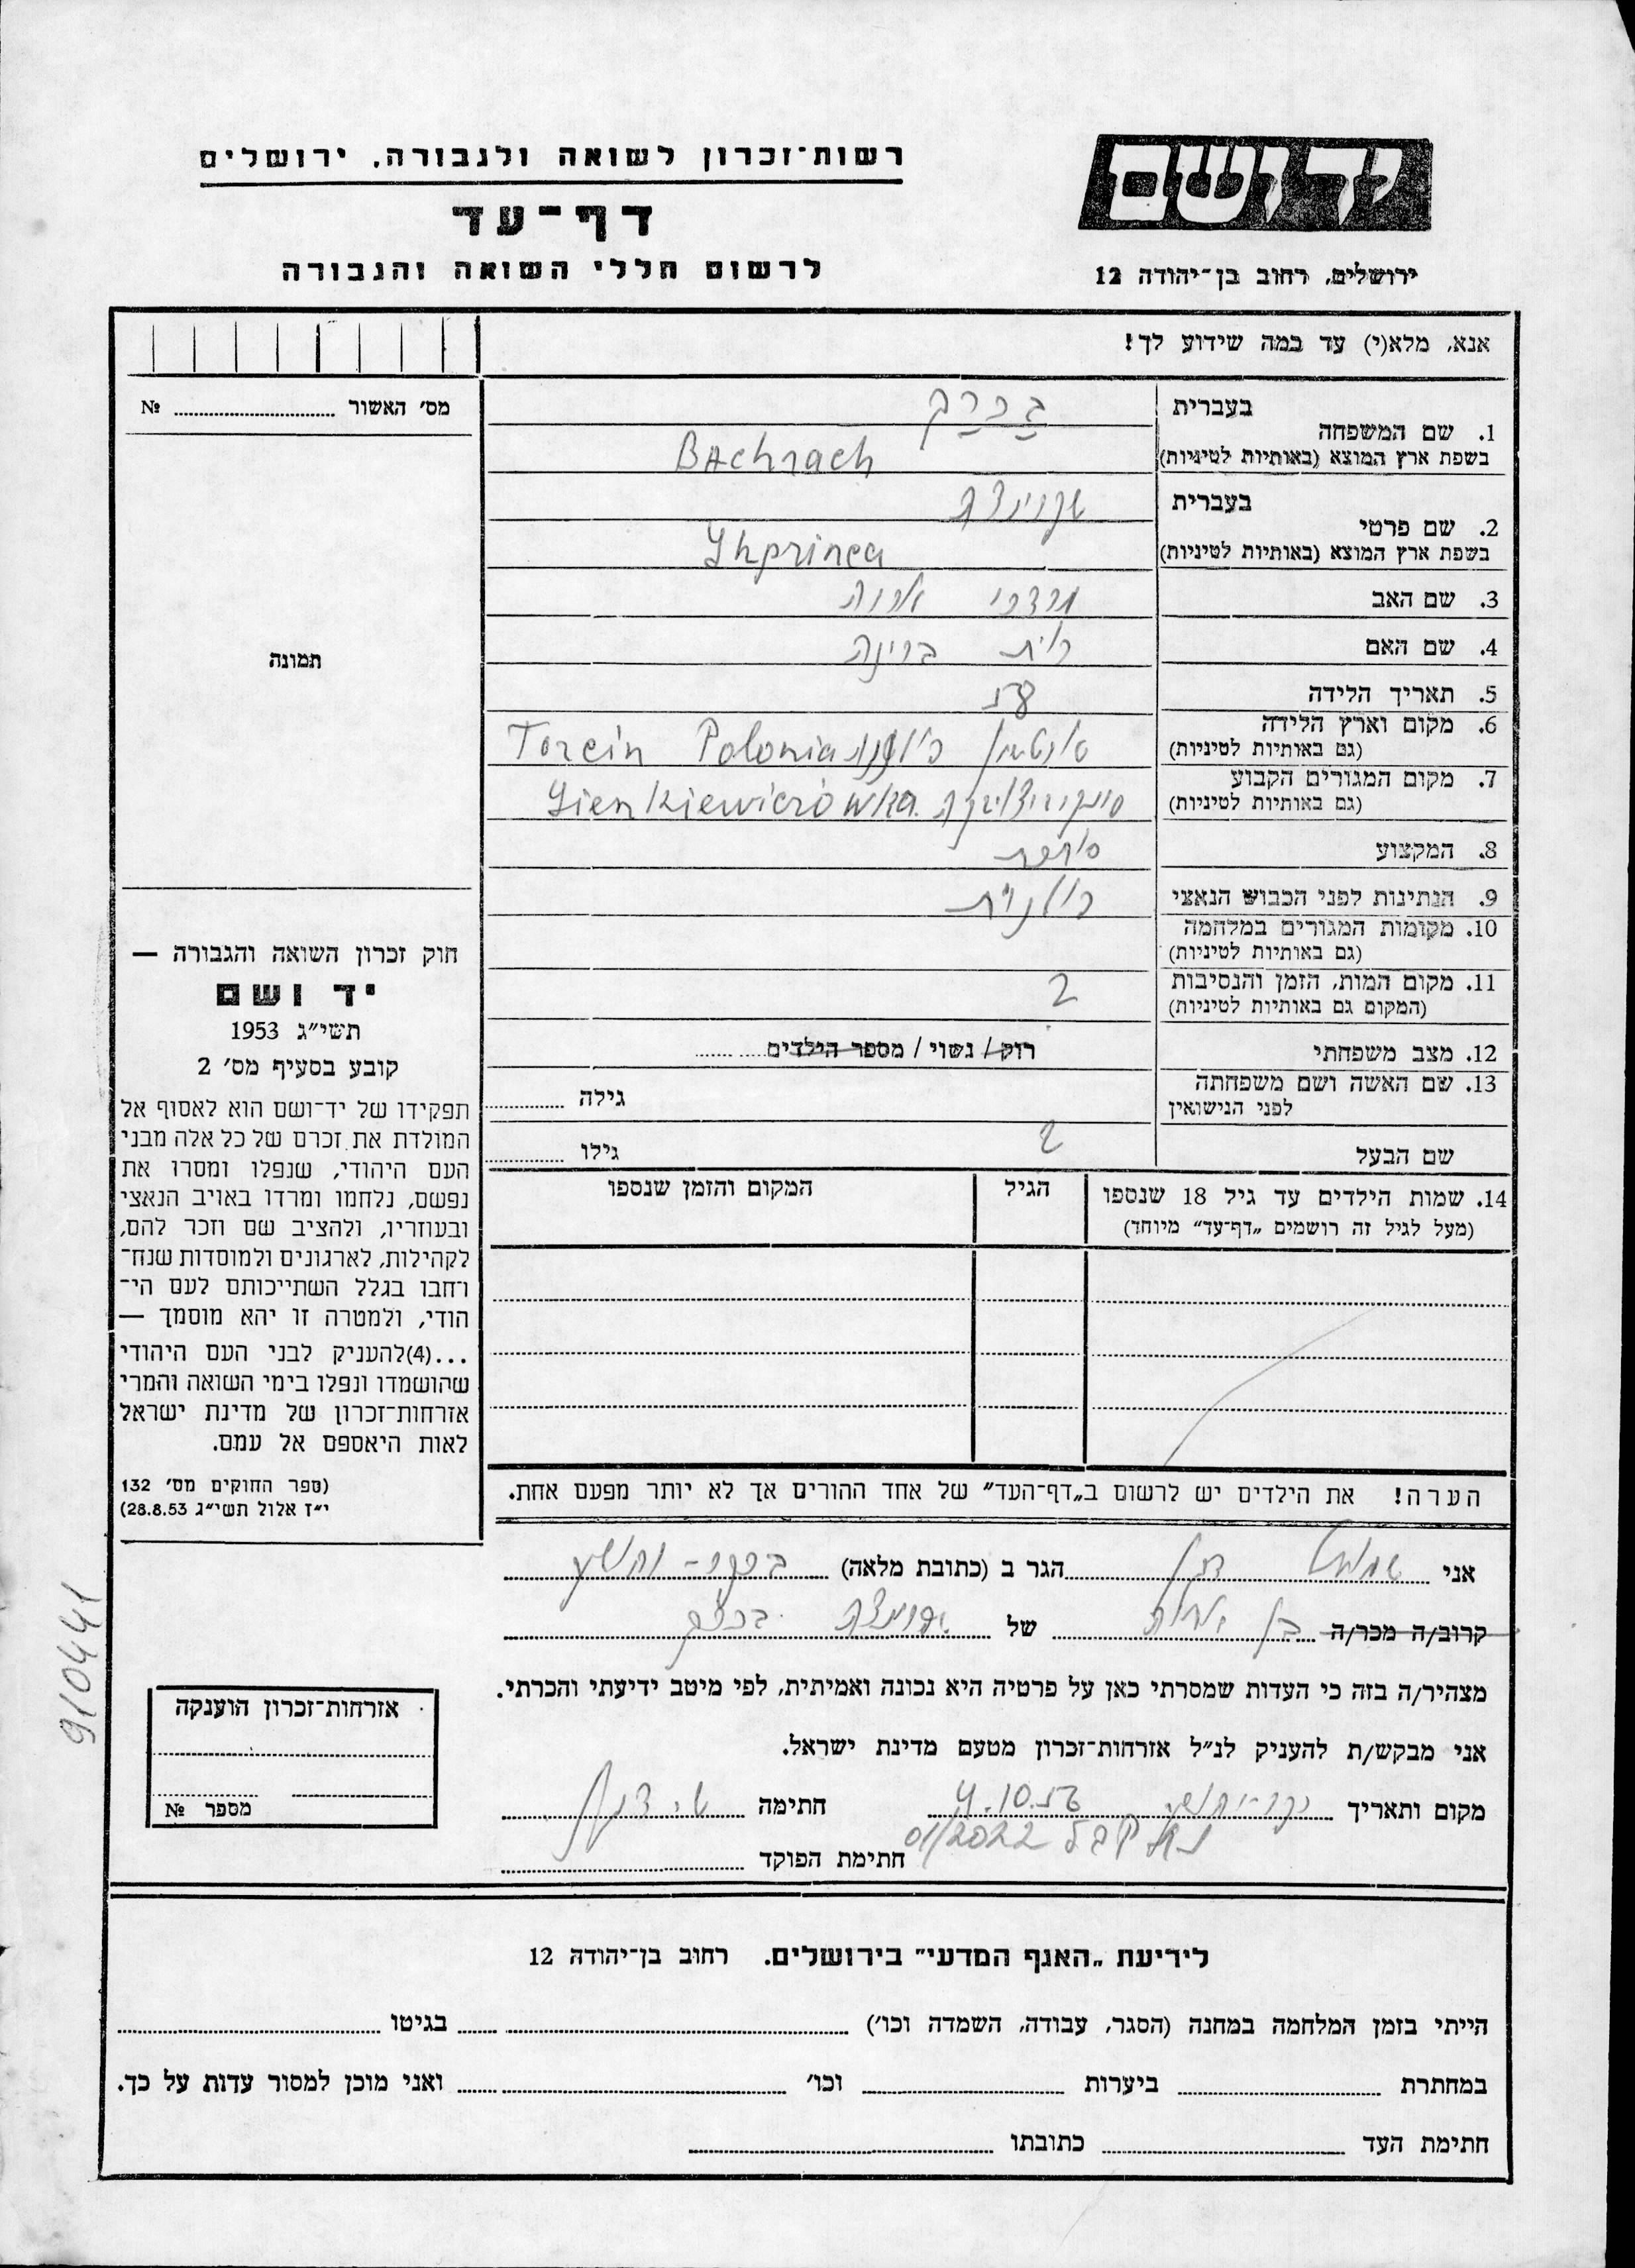 יד ושם
ירושלים, רחוב בן־יהודה 12
רשות־זכרון לשואה ולגבורה, ירושלים
דף־עד
לרשום חללי השואה והגבורה
אנא, מלא(י) עד כמה שידוע לך!
מס׳ האשור № ..........
תמונה
1. שם המשפחה
בעברית
בכרך
בשפת ארץ המוצא (באותיות לטיניות)
BAchrach
2. שם פרטי
בעברית
בשפת ארץ המוצא (באותיות לטיניות)
Shprinca
3. שם האב מרדכי
4. שם האם
5. תאריך הלידה
6. מקום וארץ הלידה
(גם באותיות לטיניות)
Torcin Polonia
7. מקום המגורים הקבוע
(גם באותיות לטיניות)
Sienkiewiczówka
8. המקצוע
9. הנתינות לפני הכבוש הנאצי פולנית
10. מקומות המגורים במלחמה
(גם באותיות לטיניות)
11. מקום המות, הזמן והנסיבות ?
(המקום גם באותיות לטיניות)
12. מצב משפחתי רוק / נשוי / מספר הילדים ..........
13. שם האשה ושם משפחתה
לפני הנישואין
גילה ..........
שם הבעל ? גילו ..........
14. שמות הילדים עד גיל 18 שנספו
(מעל לגיל זה רושמים „דף־עד” מיוחד)
הגיל
המקום והזמן שנספו
חוק זכרון השואה והגבורה —
יד ושם
תשי״ג 1953
קובע בסעיף מס׳ 2
תפקידו של יד־ושם הוא לאסוף אל
המולדת את זכרם של כל אלה מבני
העם היהודי, שנפלו ומסרו את
נפשם, נלחמו ומרדו באויב הנאצי
ובעוזריו, ולהציב שם וזכר להם,
לקהילות, לארגונים ולמוסדות שנח־
רחבו בגלל השתייכותם לעם הי־
הודי, ולמטרה זו יהא מוסמך —
...(4)להעניק לבני העם היהודי
שהושמדו ונפלו בימי השואה והמרי
אזרחות־זכרון של מדינת ישראל
לאות היאספם אל עמם.
(ספר החוקים מס׳ 132
י״ז אלול תשי״ג 28.8.53)
הערה! את הילדים יש לרשום ב„דף־העד” של אחד ההורים אך לא יותר מפעם אחת.
אני .......... הגר ב (כתובת מלאה) ..........
קרוב/ה מכר/ה בן של בכרך
מצהיר/ה בזה כי העדות שמסרתי כאן על פרטיה היא נכונה ואמיתית, לפי מיטב ידיעתי והכרתי.
אני מבקש/ת להעניק לנ״ל אזרחות־זכרון מטעם מדינת ישראל.
מקום ותאריך 4.10.56 חתימה ..........
01/2022
חתימת הפוקד ..........
אזרחות־זכרון הוענקה
מספר №
910441
לידיעת „האגף המדעי” בירושלים. רחוב בן־יהודה 12
הייתי בזמן המלחמה במחנה (הסגר, עבודה, השמדה וכו׳) .......... בגיטו ..........
במחתרת .......... ביערות .......... וכו׳ .......... ואני מוכן למסור עדות על כך.
חתימת העד .......... כתובתו ..........